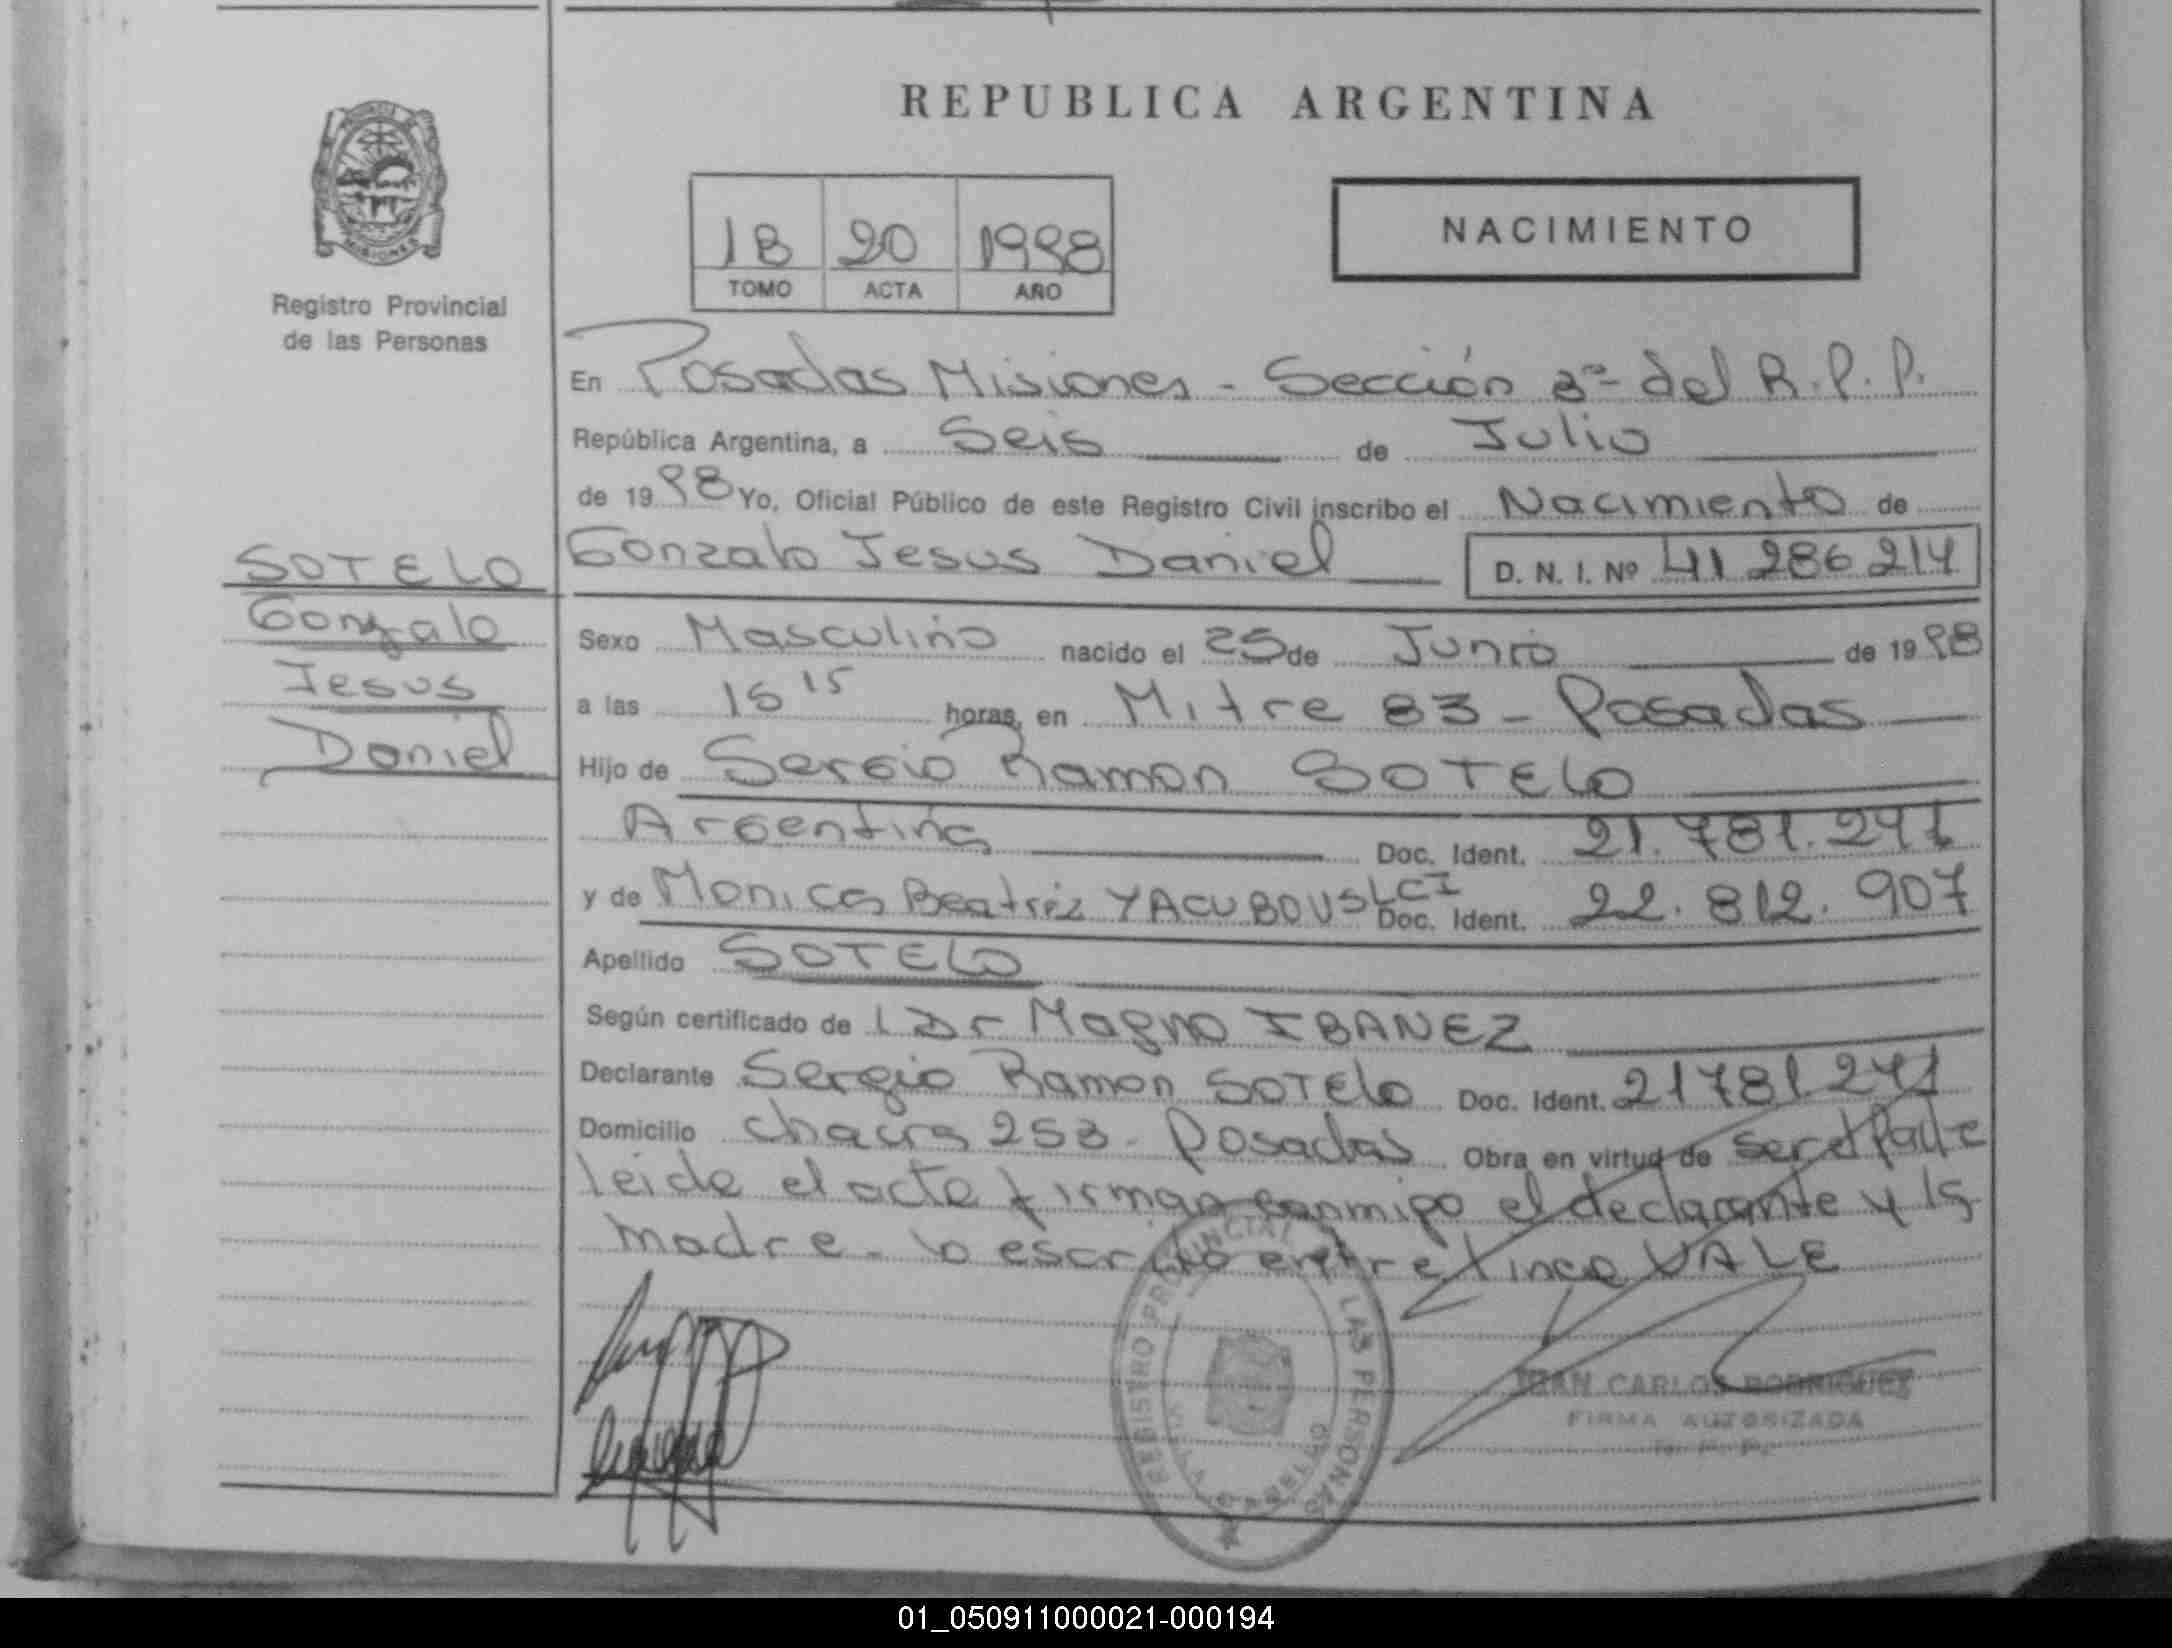 REPUBLICA ARGENTINA
MISIONES
Registro Provincial
de las Personas
1B 20 1998
TOMO ACTA AÑO
NACIMIENTO
En Posadas Misiones - Sección 3ª del R.P.P.
República Argentina, a Seis de Julio
de 1998 Yo, Oficial Público de este Registro Civil inscribo el Nacimiento de
Gonzalo Jesus Daniel D. N. I. Nº 41 286 214
SOTELO
Gonzalo
Jesus
Daniel
Sexo Masculino nacido el 25 de Junio de 1998
a las 15 15 horas, en Mitre 83 - Posadas
Hijo de Sergio Ramon SOTELO
Argentina Doc. Ident. 21.781.241
y de Monica Beatriz YACUBOUSLCI Doc. Ident. 22.812.907
Apellido SOTELO
Según certificado de Dr Magno IBANEZ
Declarante Sergio Ramon SOTELO Doc. Ident. 21781241
Domicilio chacra 253 - Posadas Obra en virtud de ser el Padre
leida el acta firman conmigo el declarante y la
madre - lo escrito entre linea VALE
REGISTRO PROVINCIAL LAS PERSONAS
JUAN CARLOS RODRIGUEZ
FIRMA AUTORIZADA
R. P. P.
01_050911000021-000194